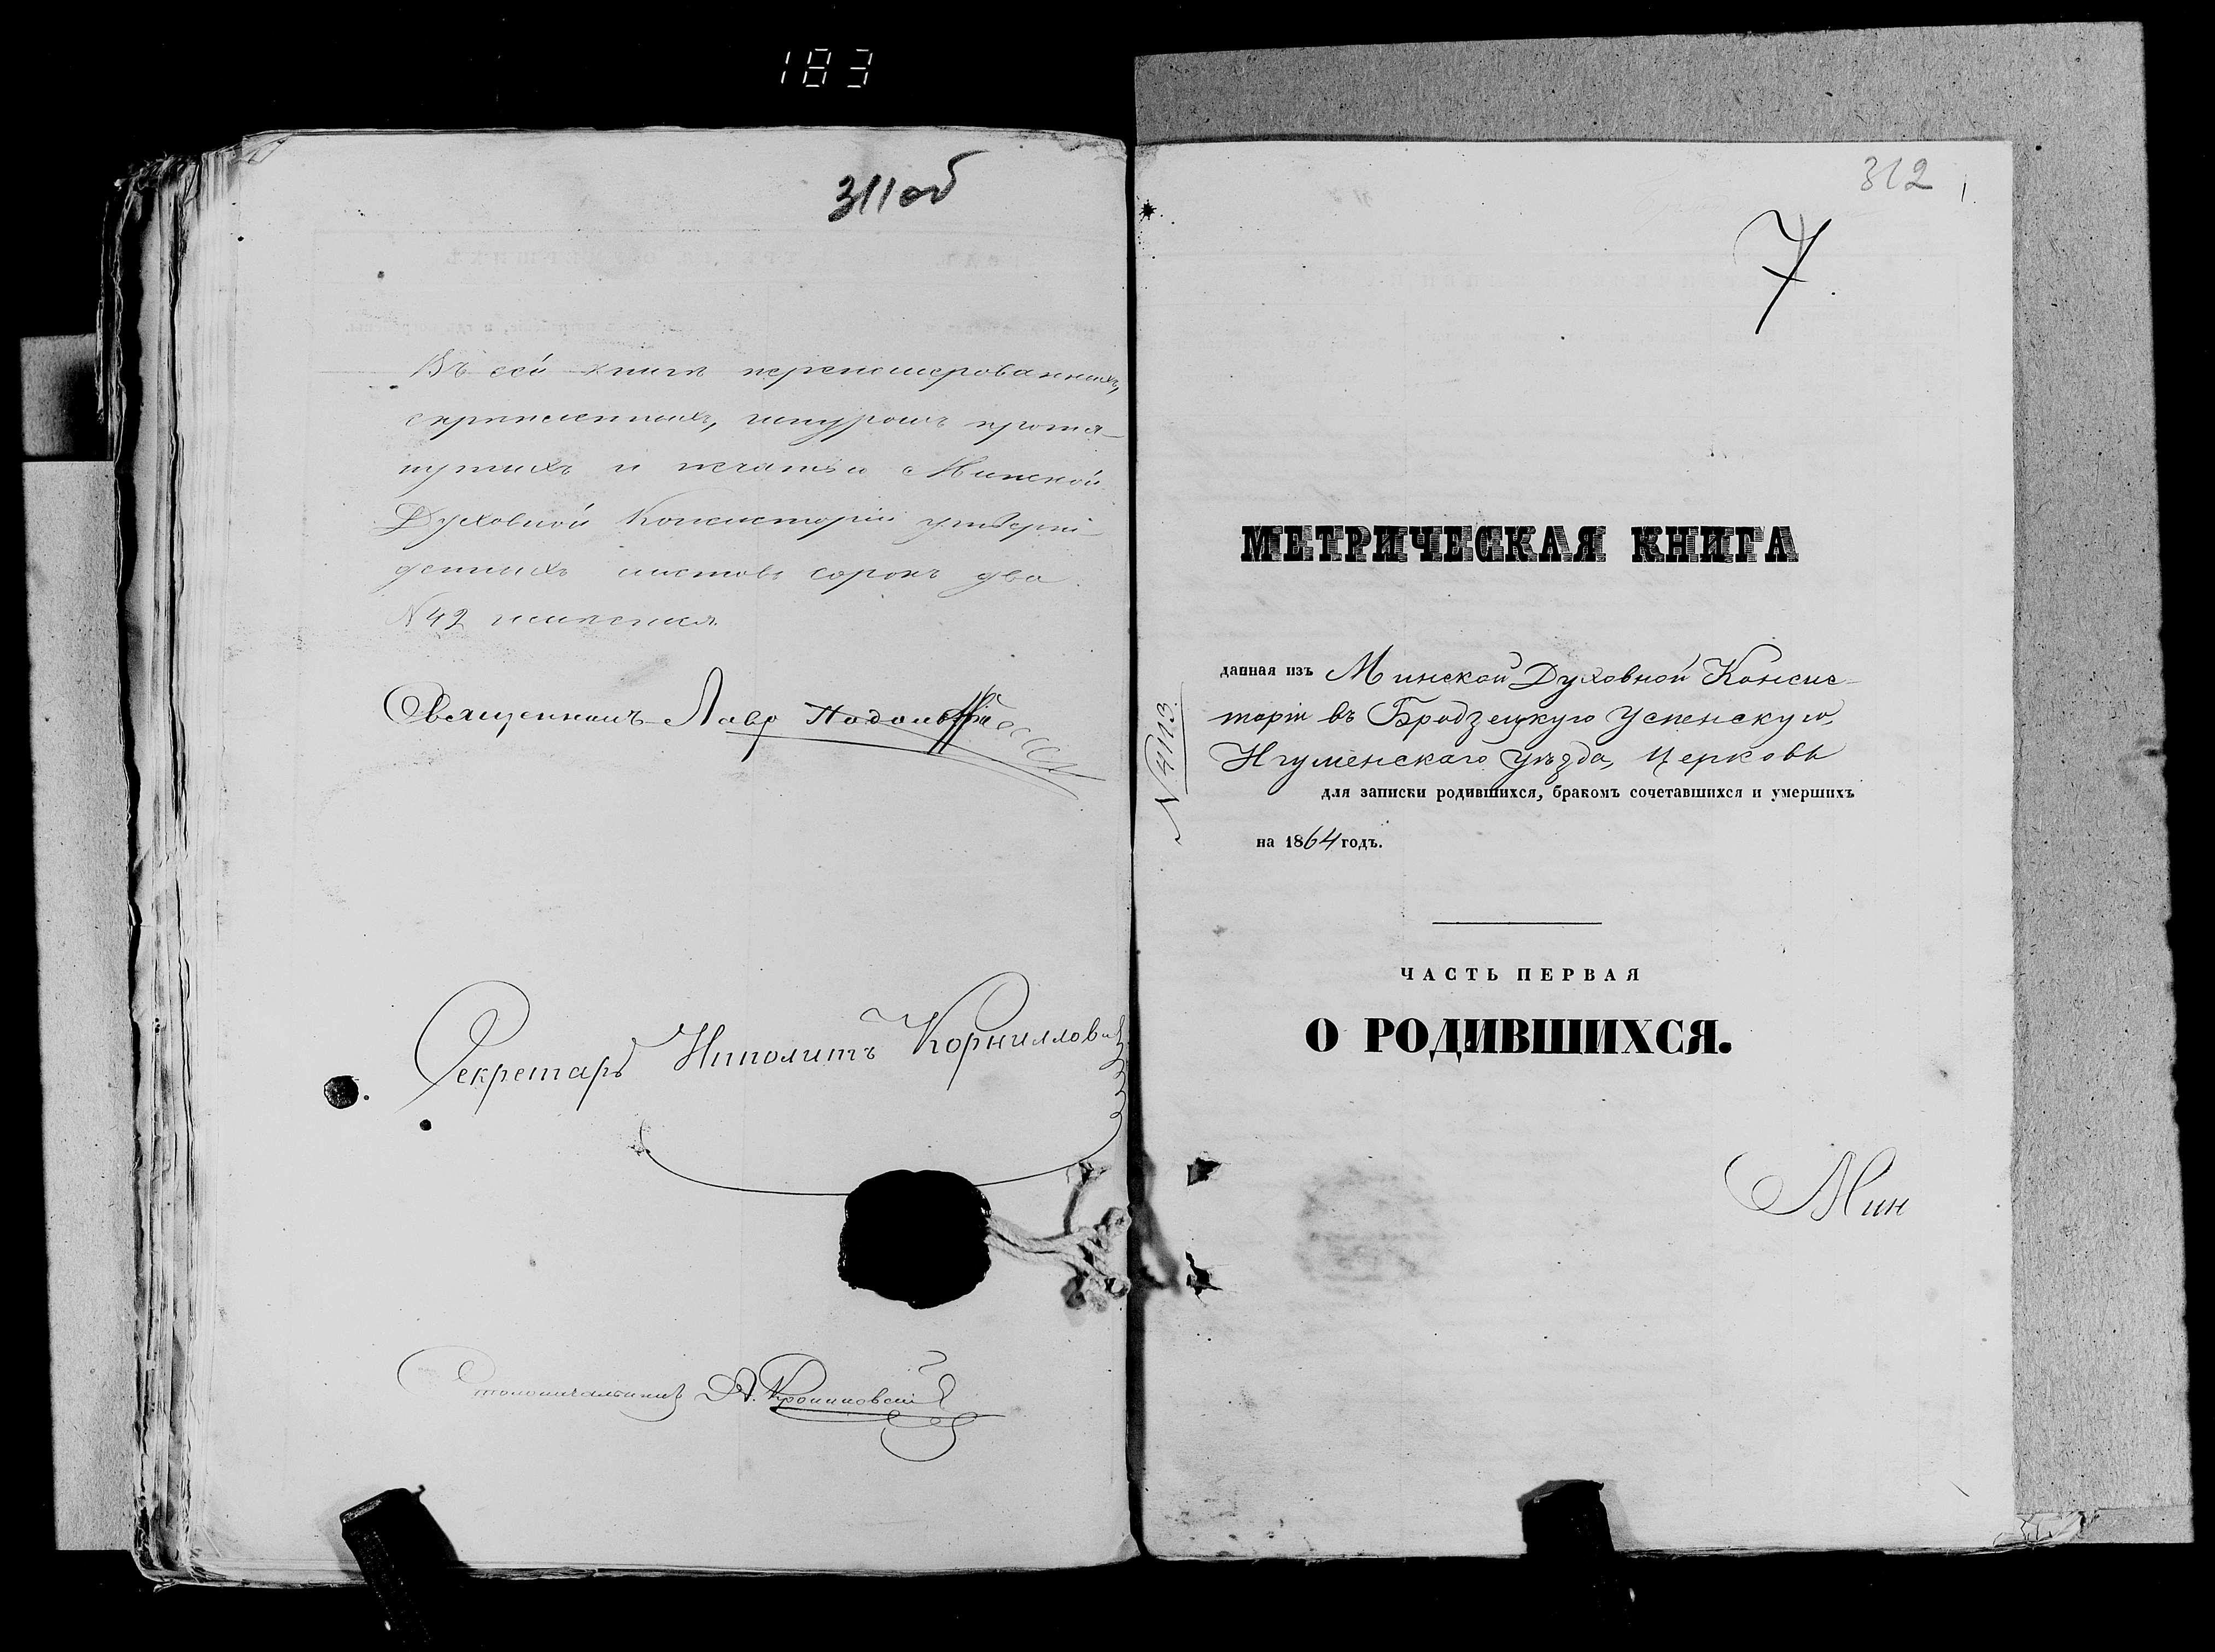 183
311об
Въ сей книге перенумерованныхъ,
скрепленныхъ, шнуромъ протя-
нутыхъ и печатью Минской
Духовной Консисторіи утверж-
денныхъ листовъ сорокъ два
N 42 имеется.
Священникъ Лавр
Секретарь Иполитъ Корниллович
Столоначальникъ А.
312
1
7
МЕТРИЧЕСКАЯ КНИГА
данная изъ Минской Духовной Консис-
торіи въ Бродзецкую Успенскую,
Игуменскаго уѣзда, Церковь
для записки родившихся, бракомъ сочетавшихся и умершихъ
на 1864 годъ.
N 4113.
ЧАСТЬ ПЕРВАЯ
О РОДИВШИХСЯ.
Мин